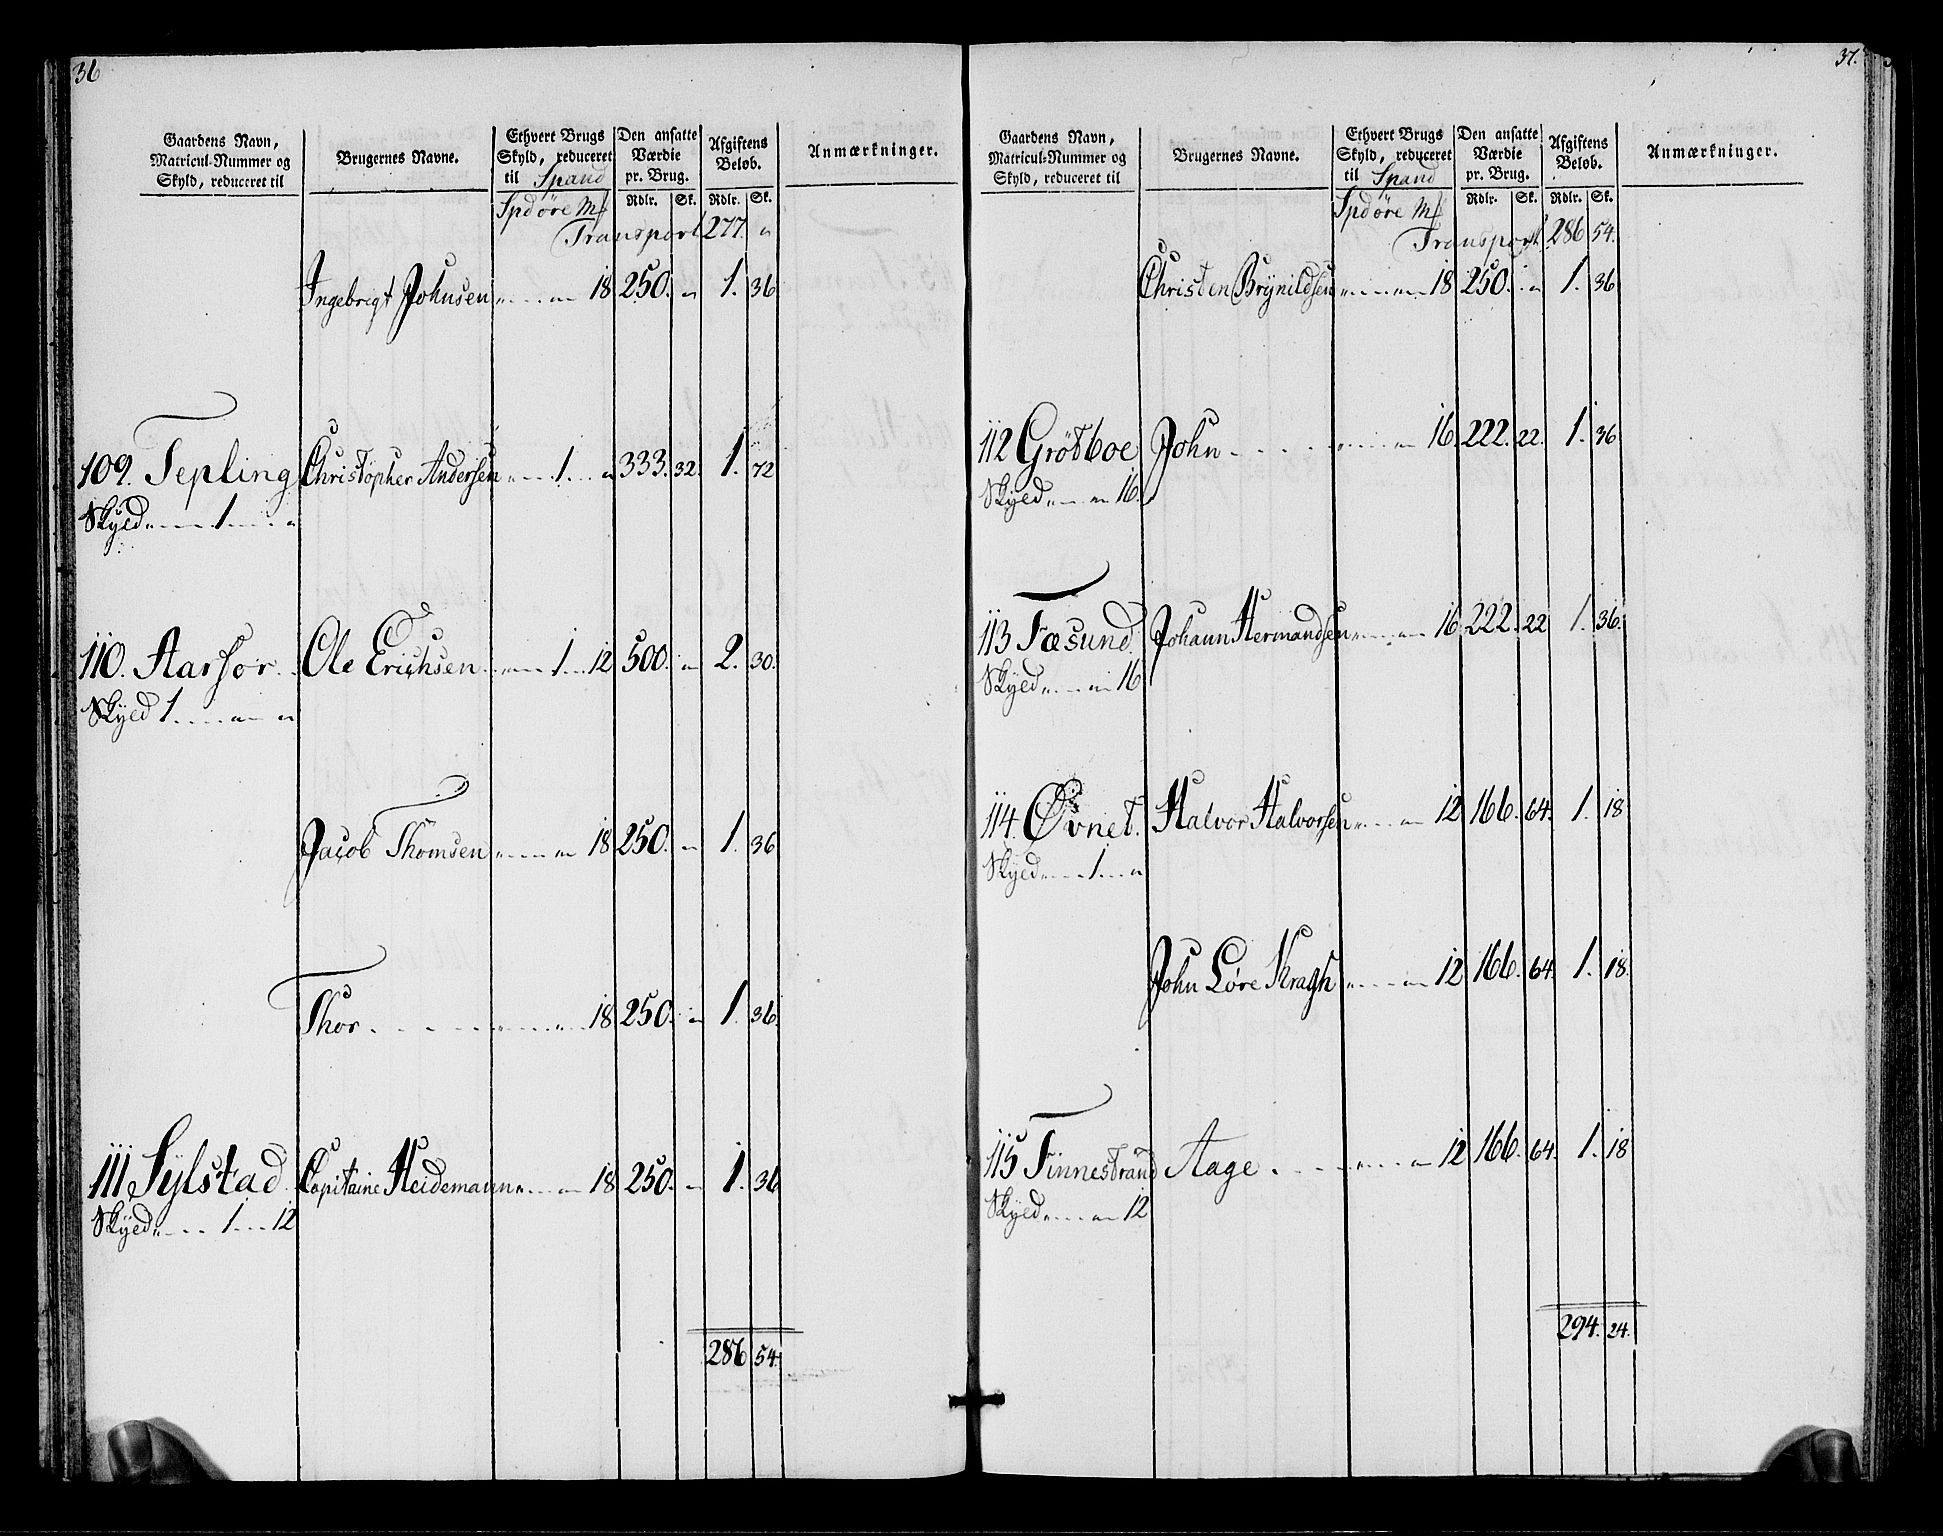 36
Gaardens Navn, Matricul-Nummer og Skyld, reduceret til
Brugernes Navne.
Ethvert Brugs Skyld, reduceret til Spand
Den ansatte Værdie pr. Brug.
Afgiftens Beløb.
Anmærkninger.
Spd öre Mk
Rdlr. Sk. Rdlr. Sk.
Transport 277. "
Ingebrigt Johnsen " " 18 250. " 1. 36
109. Tepling Christopher Andersen " 1 " 333. 32. 1. 72
Skyld " 1 "
110. Aarfor Ole Erichsen " 1 12 500. " 2. 30.
Skyld 1 " "
Jacob Thomsen " " 18 250. " 1. 36
Thor " " 18 250. " 1. 36
111 Sylstad Capitaine Heidemann " " 18 250. " 1. 36
Skyld " 1 12
286 54.
37.
Gaardens Navn, Matricul-Nummer og Skyld, reduceret til
Brugernes Navne.
Ethvert Brugs Skyld, reduceret til Spand
Den ansatte Værdie pr. Brug.
Afgiftens Beløb.
Anmærkninger.
Spd öre Mk
Rdlr. Sk. Rdlr. Sk.
Transport 286 54.
Christen Brynildsen " " 18 250. " 1. 36
112 Grötboe John " " 16 222. 22. 1. 36
Skyld " " 16.
113 Fæsund Johann Hermandsen " " 16 222. 22 1. 36.
Skyld " " 16
114. Øvnet. Halvor Halvorsen " " 12 166. 64. 1. 18
Skyld " 1 "
John Löre Kragh " " 12 166. 64. 1. 18.
115 Finnestrand Aage " " 12 166. 64. 1. 18
Skyld " " 12
294. 24.